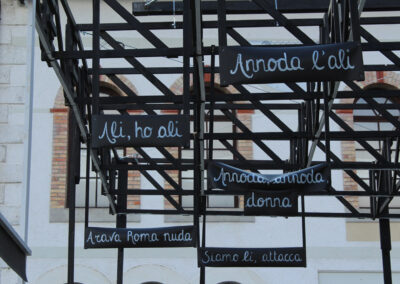 Annoda l'ali
Ali, ho ali
Annoda, annoda
donna
Arava Roma nuda
Siamo li, attacca